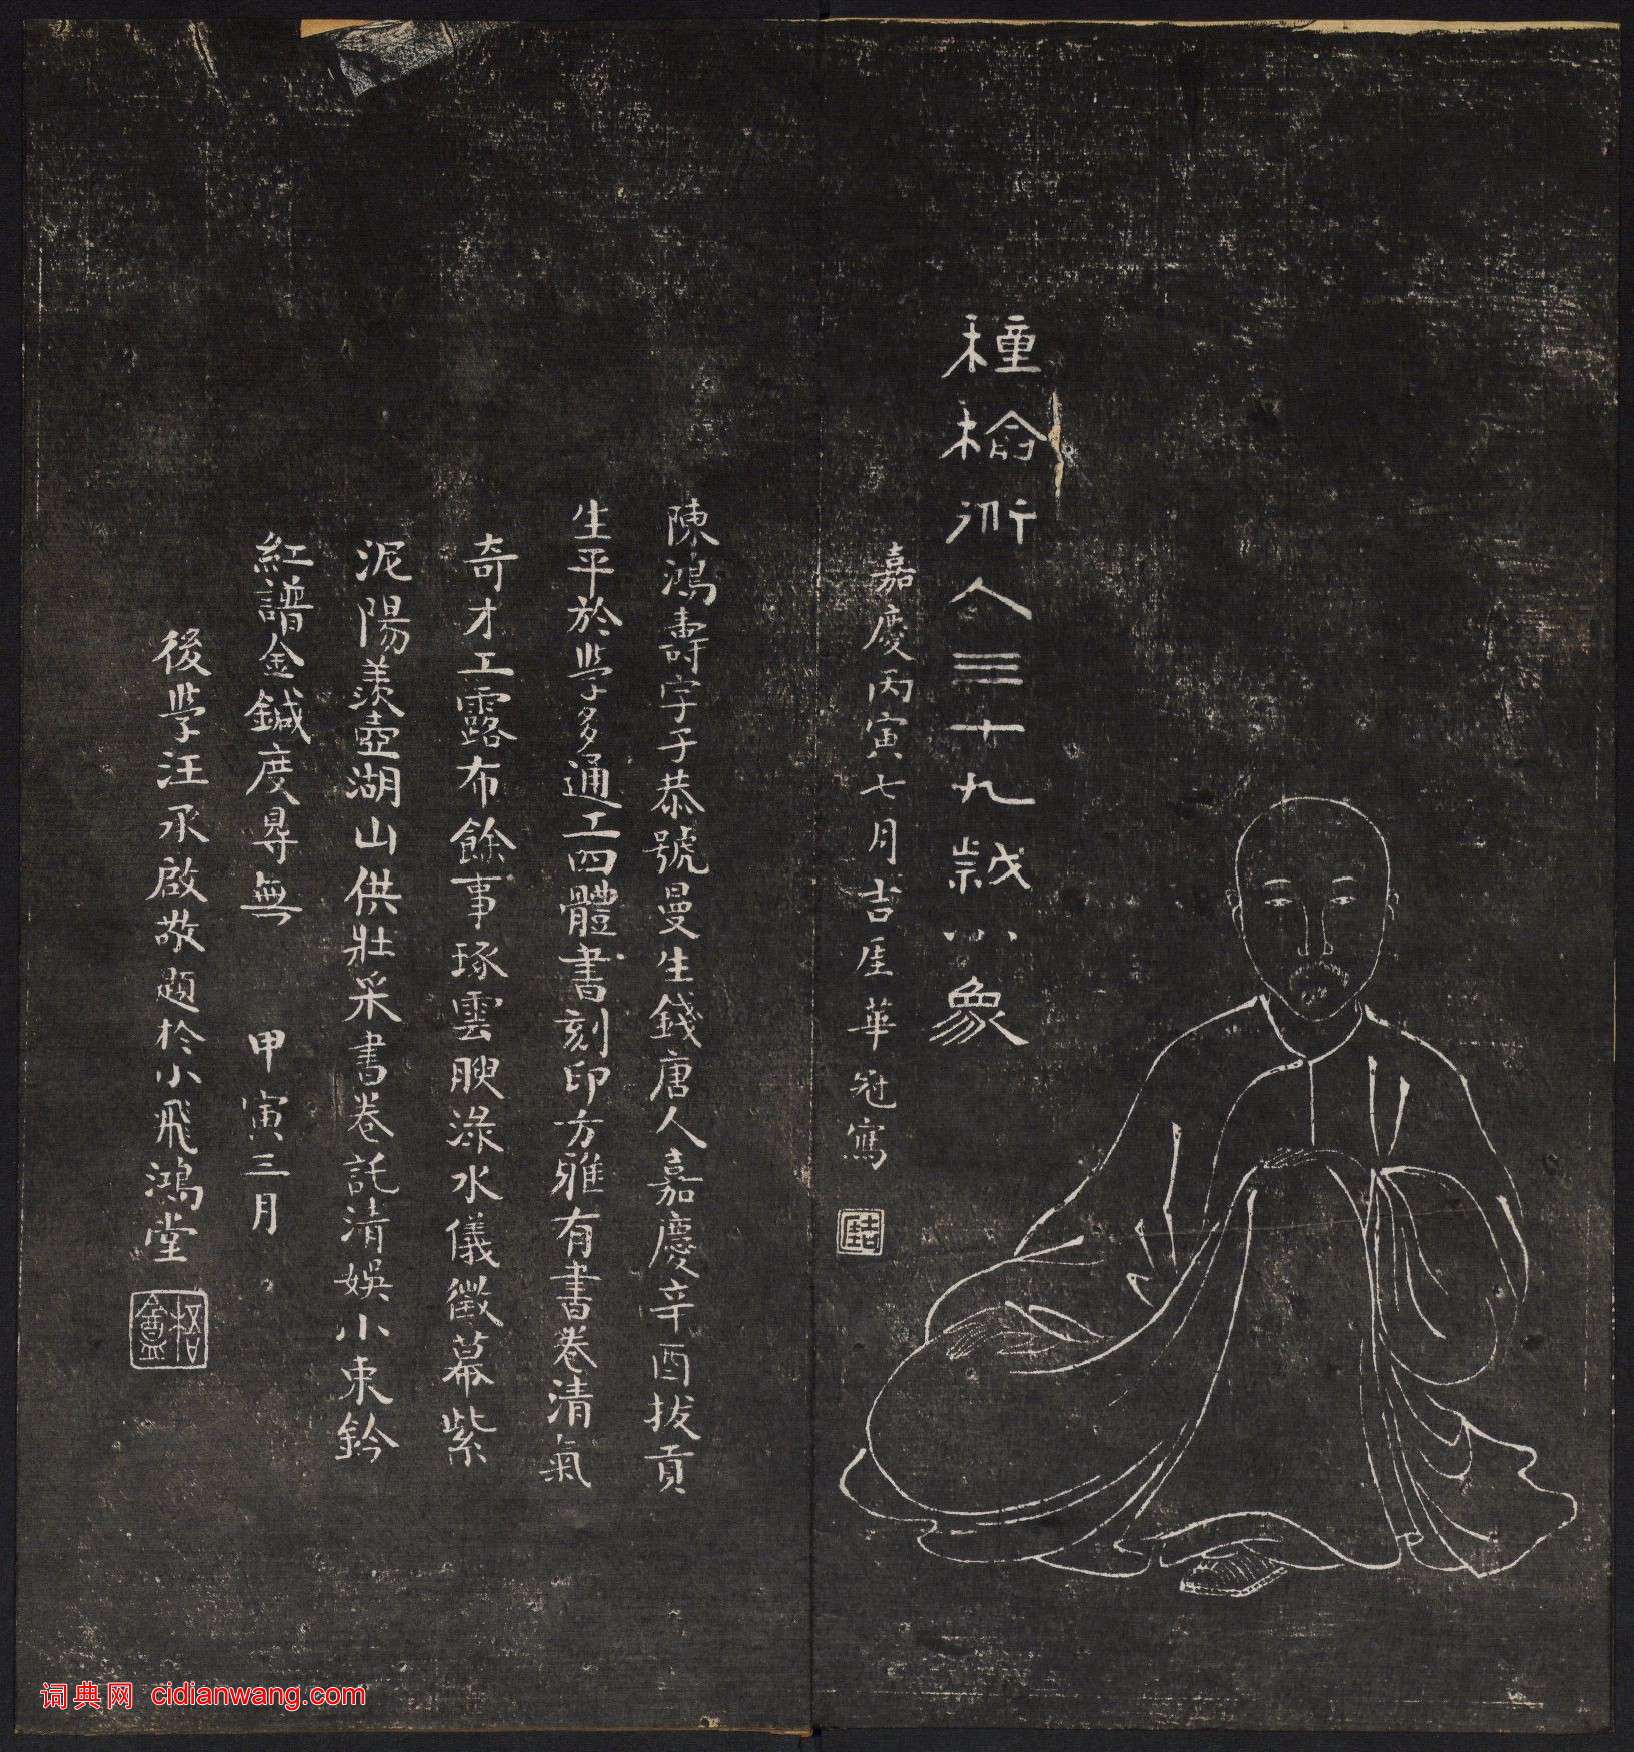 種榆仙人三十九歲小象
嘉慶丙寅七月吉厓華冠寫
吉厓
陳鴻壽字子恭號曼生錢唐人嘉慶辛酉拔貢
生平於學多通工四體書刻印方雅有書卷清氣
奇才工露布餘事琢雲腴淥水儀徵幕紫
泥陽羨壺湖山供壯采書卷託清娛小束鈐
紅譜金鍼度㝵無 甲寅三月
後學汪承啟敬題於小飛鴻堂
词典网 cidianwang.com